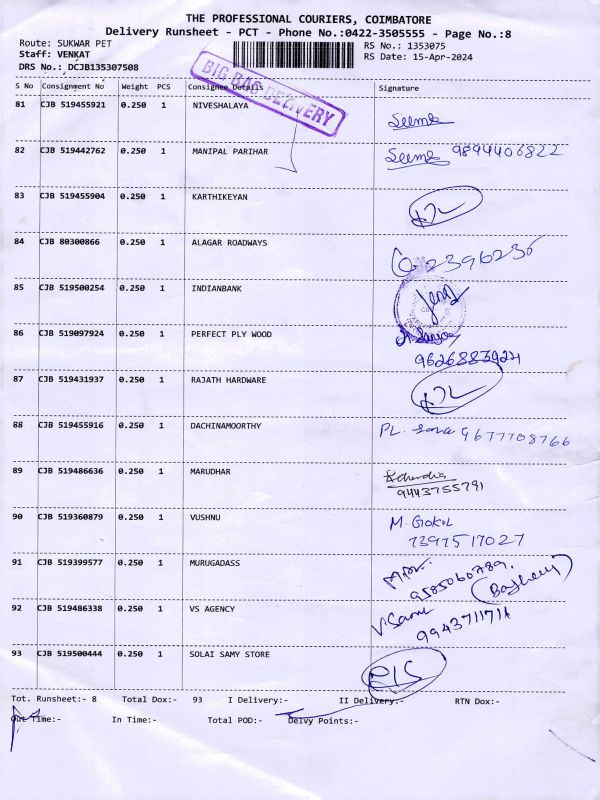 THE PROFESSIONAL COURIERS, COIMBATORE
Delivery Runsheet - PCT - Phone No.:0422-3505555 - Page No.:8
Route: SUKWAR PET
RS No.: 1353075
Staff: VENKAT
RS Date: 15-Apr-2024
DRS No.: DCJB135307508
BIG BAG DELIVERY
S No Consignment No Weight PCS Consignee Details Signature
81 CJB 519455921 0.250 1 NIVESHALAYA Seema
82 CJB 519442762 0.250 1 MANIPAL PARIHAR Seema 9894406822
83 CJB 519455904 0.250 1 KARTHIKEYAN
84 CJB 80300866 0.250 1 ALAGAR ROADWAYS 2396236
85 CJB 519500254 0.250 1 INDIANBANK
86 CJB 519097924 0.250 1 PERFECT PLY WOOD
87 CJB 519431937 0.250 1 RAJATH HARDWARE
88 CJB 519455916 0.250 1 DACHINAMOORTHY 9677708766
89 CJB 519486636 0.250 1 MARUDHAR
9443755791
90 CJB 519360879 0.250 1 VUSHNU M. Gokul
7397517027
91 CJB 519399577 0.250 1 MURUGADASS
9585060789.
92 CJB 519486338 0.250 1 VS AGENCY
93 CJB 519500444 0.250 1 SOLAI SAMY STORE
Tot. Runsheet:- 8 Total Dox:- 93 I Delivery:- II Delivery:- RTN Dox:-
Out Time:- In Time:- Total POD:- Delvy Points:-